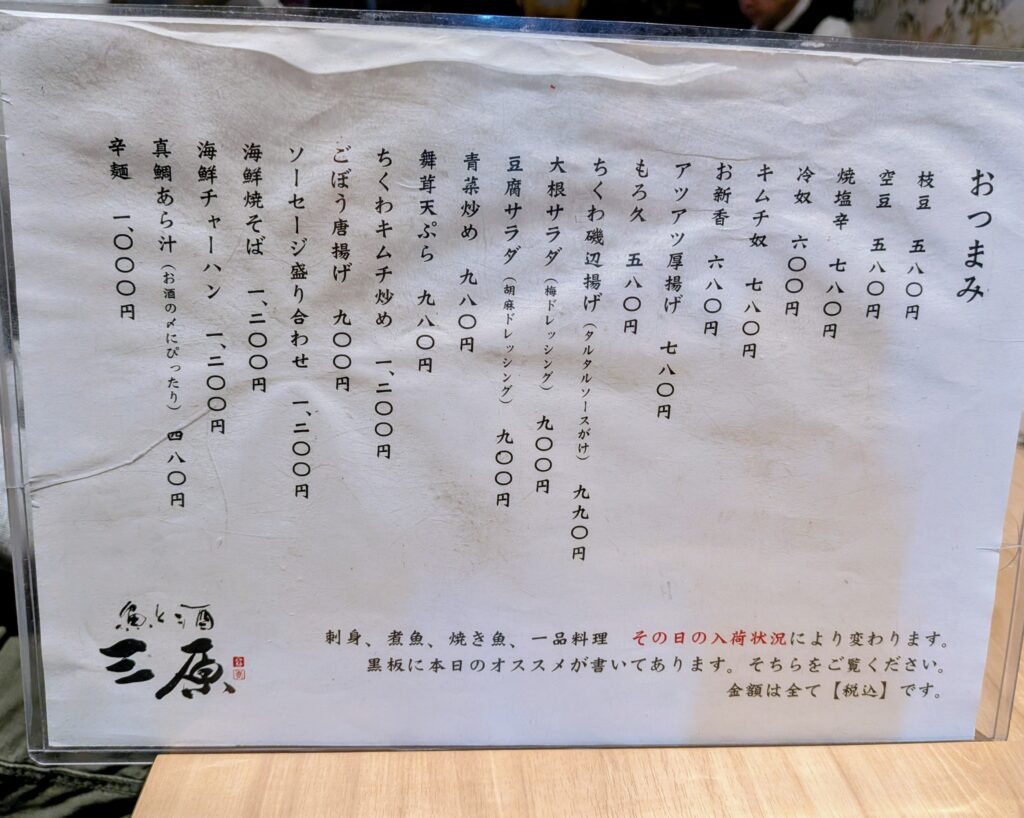 おつまみ
枝豆 五八〇円
空豆 五八〇円
焼塩辛 七八〇円
冷奴 六〇〇円
キムチ奴 七八〇円
お新香 六八〇円
アツアツ厚揚げ 七八〇円
もろ久 五八〇円
ちくわ磯辺揚げ(タルタルソースがけ) 九九〇円
大根サラダ(梅ドレッシング) 九〇〇円
豆腐サラダ(胡麻ドレッシング) 九〇〇円
青菜炒め 九八〇円
舞茸天ぷら 九八〇円
ちくわキムチ炒め 一、二〇〇円
ごぼう唐揚げ 九〇〇円
ソーセージ盛り合わせ 一、二〇〇円
海鮮焼そば 一、二〇〇円
海鮮チャーハン 一、二〇〇円
真鯛あら汁(お酒の〆にぴったり) 四八〇円
辛麺 一、〇〇〇円
刺身、煮魚、焼き魚、一品料理 その日の入荷状況により変わります。
黒板に本日のオススメが書いてあります。そちらをご覧ください。
金額は全て【税込】です。
魚と酒
三原